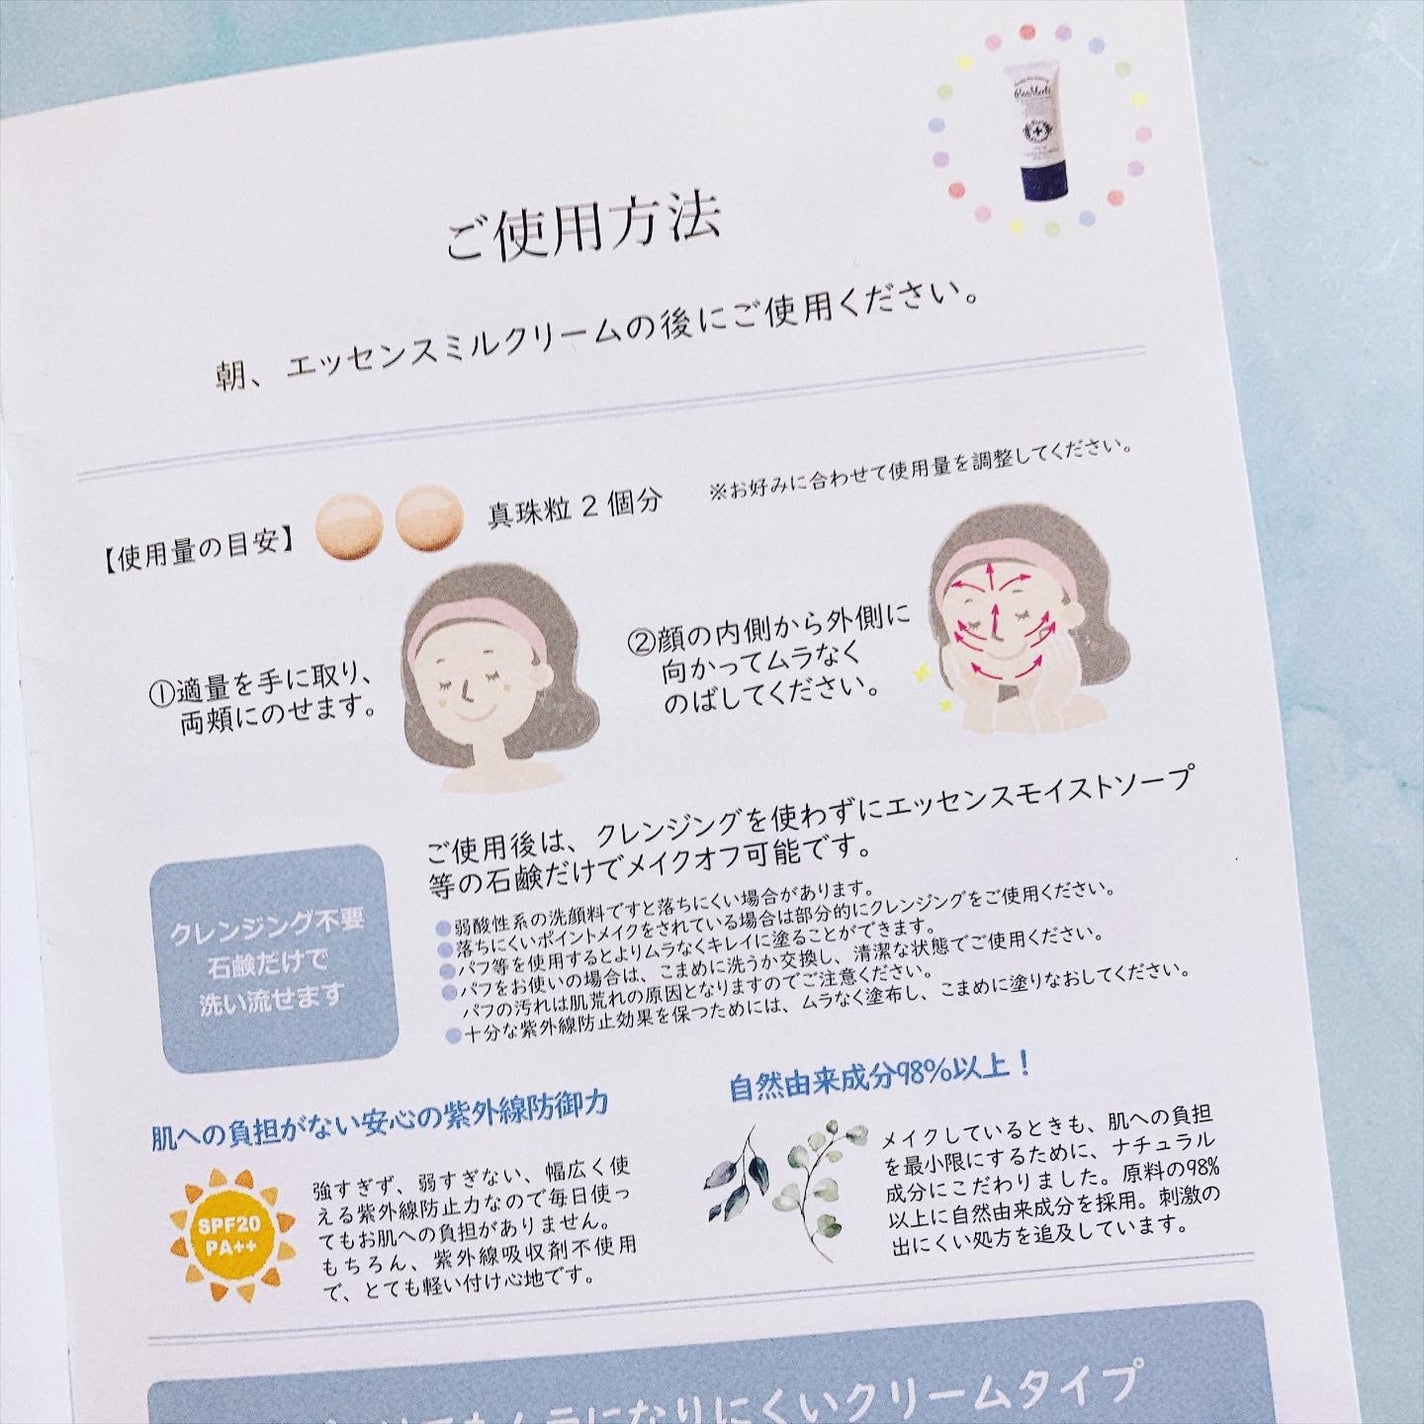 ご使用方法
朝、エッセンスミルクリームの後にご使用ください。
【使用量の目安】 真珠粒2個分 ※お好みに合わせて使用量を調整してください。
①適量を手に取り、
両頬にのせます。
②顔の内側から外側に
向かってムラなく
のばしてください。
クレンジング不要
石鹸だけで
洗い流せます
ご使用後は、クレンジングを使わずにエッセンスモイストソープ
等の石鹸だけでメイクオフ可能です。
●弱酸性系の洗顔料ですと落ちにくい場合があります。
●落ちにくいポイントメイクをされている場合は部分的にクレンジングをご使用ください。
●パフ等を使用するとよりムラなくキレイに塗ることができます。
●パフをお使いの場合は、こまめに洗うか交換し、清潔な状態でご使用ください。
パフの汚れは肌荒れの原因となりますのでご注意ください。
●十分な紫外線防止効果を保つためには、ムラなく塗布し、こまめに塗りなおしてください。
肌への負担がない安心の紫外線防御力
SPF20
PA++
強すぎず、弱すぎない、幅広く使
える紫外線防止力なので毎日使っ
てもお肌への負担がありません。
もちろん、紫外線吸収剤不使用
で、とても軽い付け心地です。
自然由来成分98%以上！
メイクしているときも、肌への負担
を最小限にするために、ナチュラル
成分にこだわりました。原料の98%
以上に自然由来成分を採用。刺激の
出にくい処方を追及しています。
てもムラになりにくいクリームタイプ